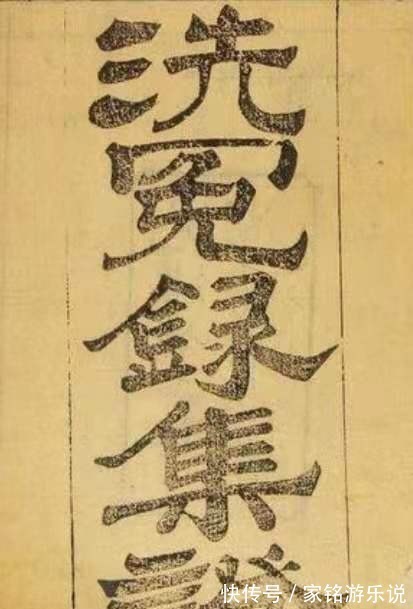 洗冤錄集證
快传号/家铭游乐说